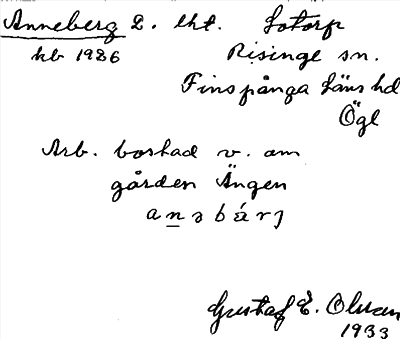 Anneberg L. lht. Lotorp
kb 1926 Risinge sn.
Finspånga läns hd
Ögl
Arb. bostad v. om
gården Ängen
anəbárj
Gustaf E. Olsson
1933